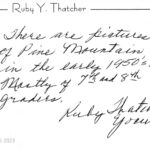 Ruby Y. Thatcher
There are pictures
of Pine Mountain
in the early 1950's.
Mostly of 7th and 8th
graders.
Ruby Thatcher
2023